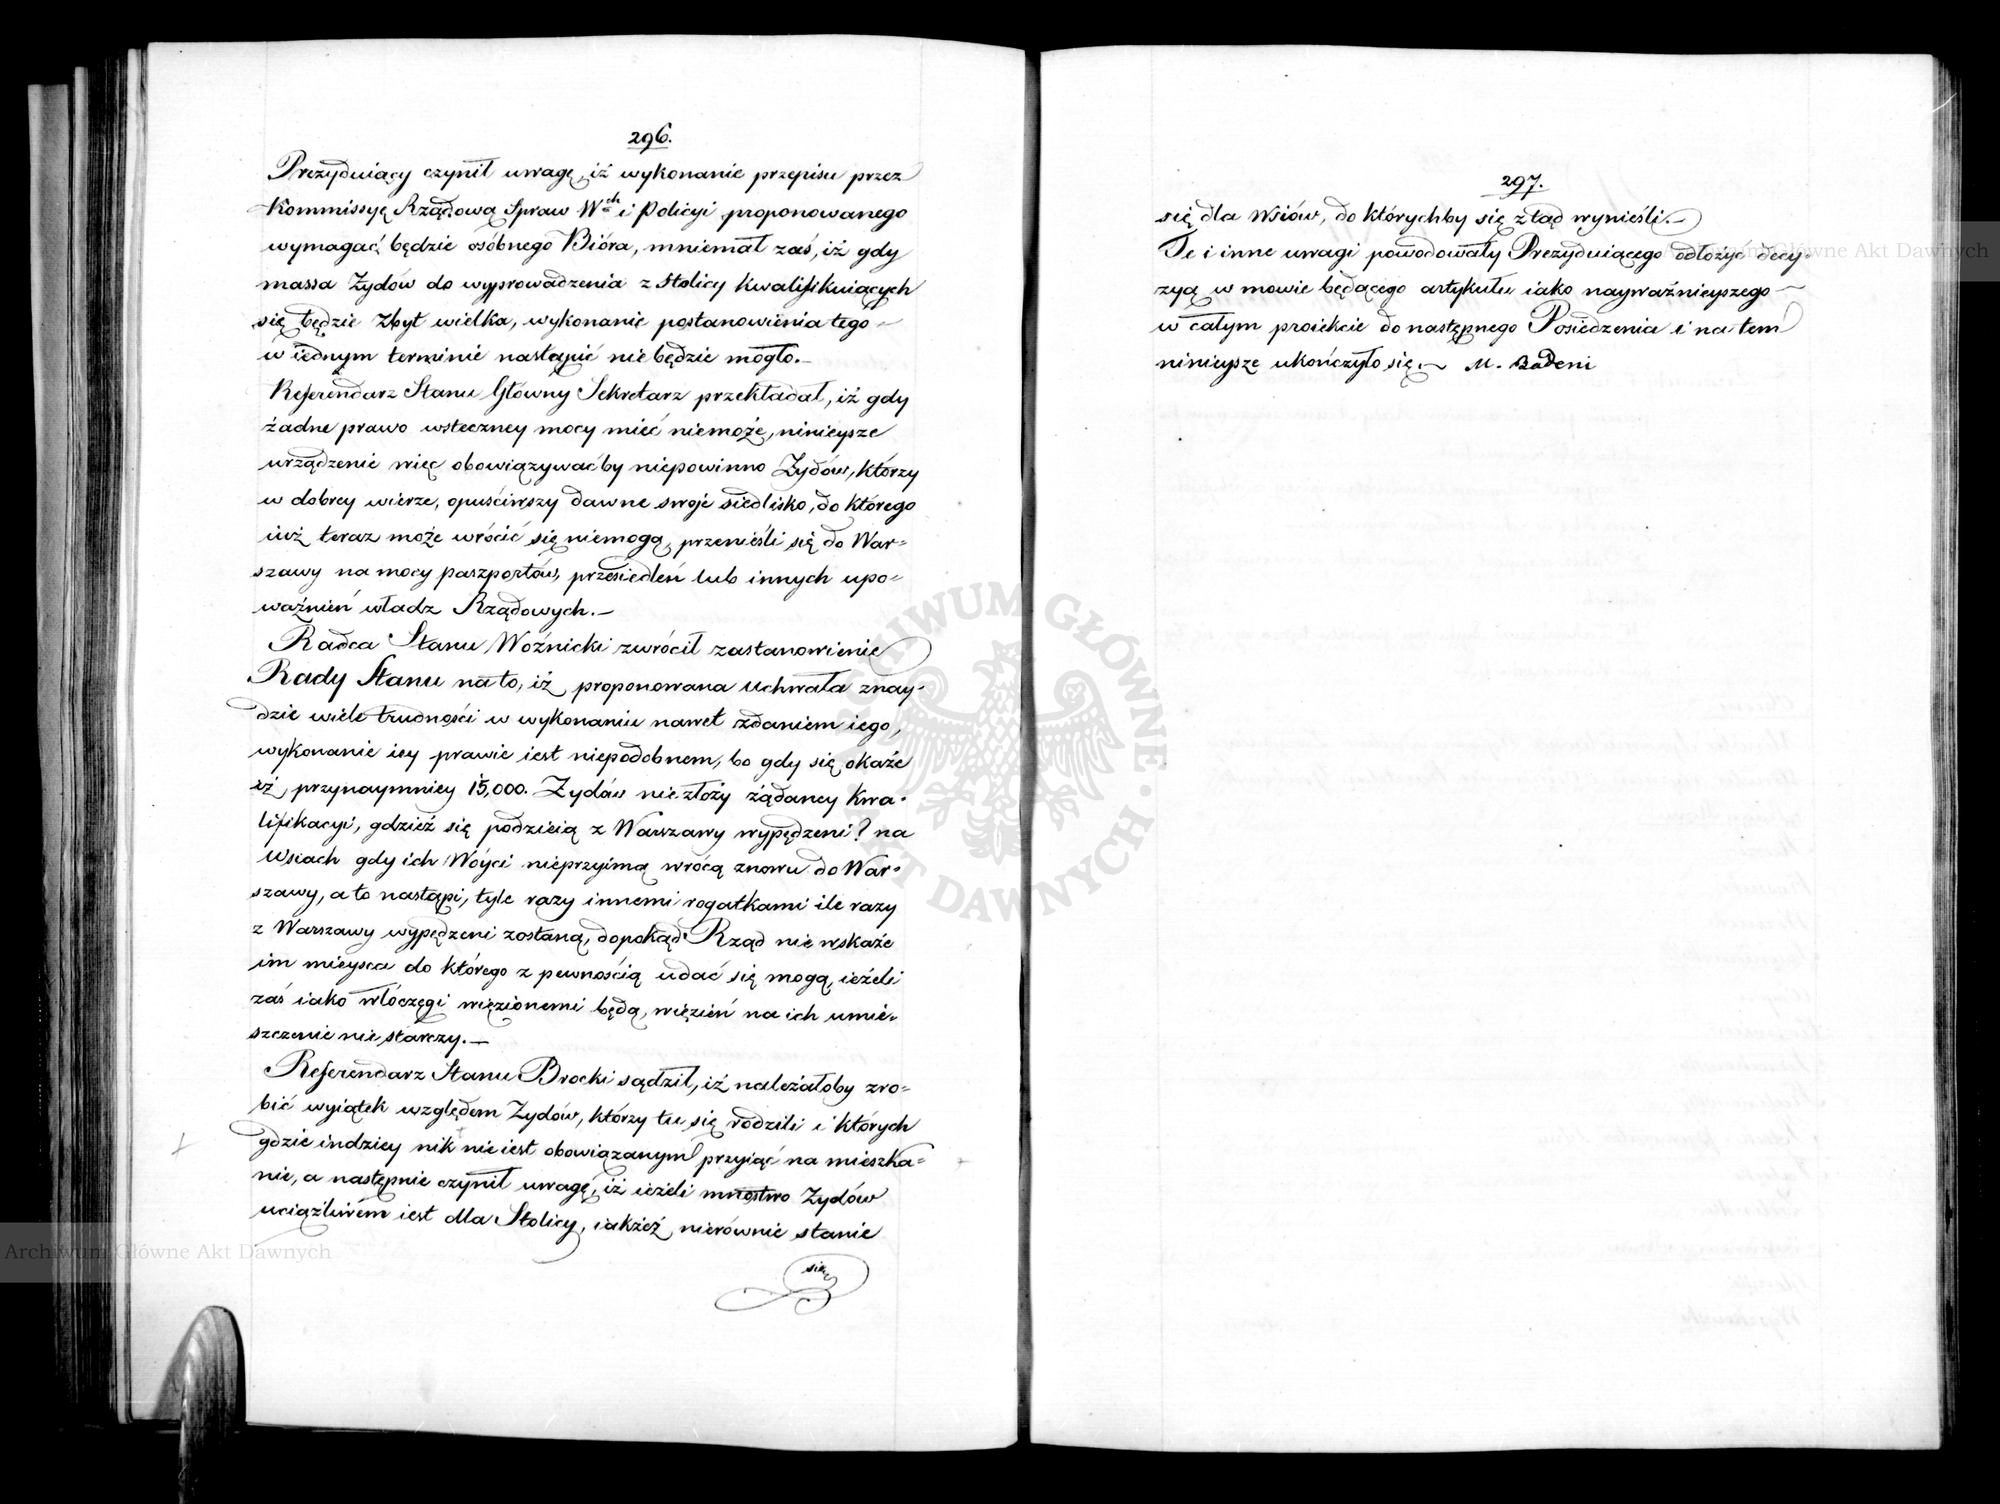 296.
Prezyduiący czynił uwagę, iż wykonanie przepisu przez
Kommissyę Rządową Spraw Wch i Policyi proponowanego
wymagać będzie osóbnego Bióra, mniemał zaś, iż gdy
massa Żydów do wyprowadzenia z Stolicy kwalifikuiących
się będzie zbyt wielka, wykonanie postanowienia tego
w iednym terminie nastąpić nie będzie mogło.—
Referendarz Stanu Główny Sekretarz przekładał, iż gdy
żadne prawo wsteczney mocy mieć niemoże, ninieysze
urządzenie więc obowiązywaćby niepowinno Żydów, którzy
w dobrey wierze, opuściwszy dawne swoje siedlisko, do którego
iuż teraz może wrócić się niemogą, przenieśli się do War=
szawy na mocy paszportów, przesiedleń lub innych upo=
ważnień władz Rządowych.—
Radca Stanu Woźnicki zwrócił zastanowienie
Rady Stanu na to, iż proponowana Uchwała znay=
dzie wiele trudności w wykonaniu nawet zdaniem iego,
wykonanie iey prawie iest niepodobnem, bo gdy się okaże
iż przynaymniey 15,000. Żydów niezłoży żądaney kwa=
lifikacyi, gdzież się podzieią z Warszawy wypędzeni? na
Wsiach gdy ich Wóyci nieprzyimą wrócą znowu do War=
szawy, a to nastąpi, tyle razy innemi rogatkami ile razy
z Warszawy wypędzeni zostaną, dopokąd Rząd nie wskaże
im mieysca do którego z pewnością udać się mogą, ieżeli
zaś iako włóczęgi więzionemi będą, więzień na ich umie=
szczenie nie starczy.—
Referendarz Stanu Brocki sądził, iż należałoby zro=
bić wyiątek względem Żydów, którzy tu się rodzili i których
gdzie indziey nik nie iest obowiązanym przyiąć na mieszka=
nie, a następnie czynił uwagę, iż ieżeli mnostwo Żydów
uciążliwém iest dla Stolicy, iakżeż nierównie stanie
się
297.
się dla Wsiów, do którychby się ztąd wynieśli.—
Te i inne uwagi powodowały Prezyduiącego odłożyć decy=
zyą w mowie będącego artykułu iako nayważnieyszego
w całym proiekcie do następnego Posiedzenia i na tem
ninieysze ukończyło się.— M. Badeni
ARCHIWUM GŁÓWNE AKT DAWNYCH
Archiwum Główne Akt Dawnych
Archiwum Główne Akt Dawnych